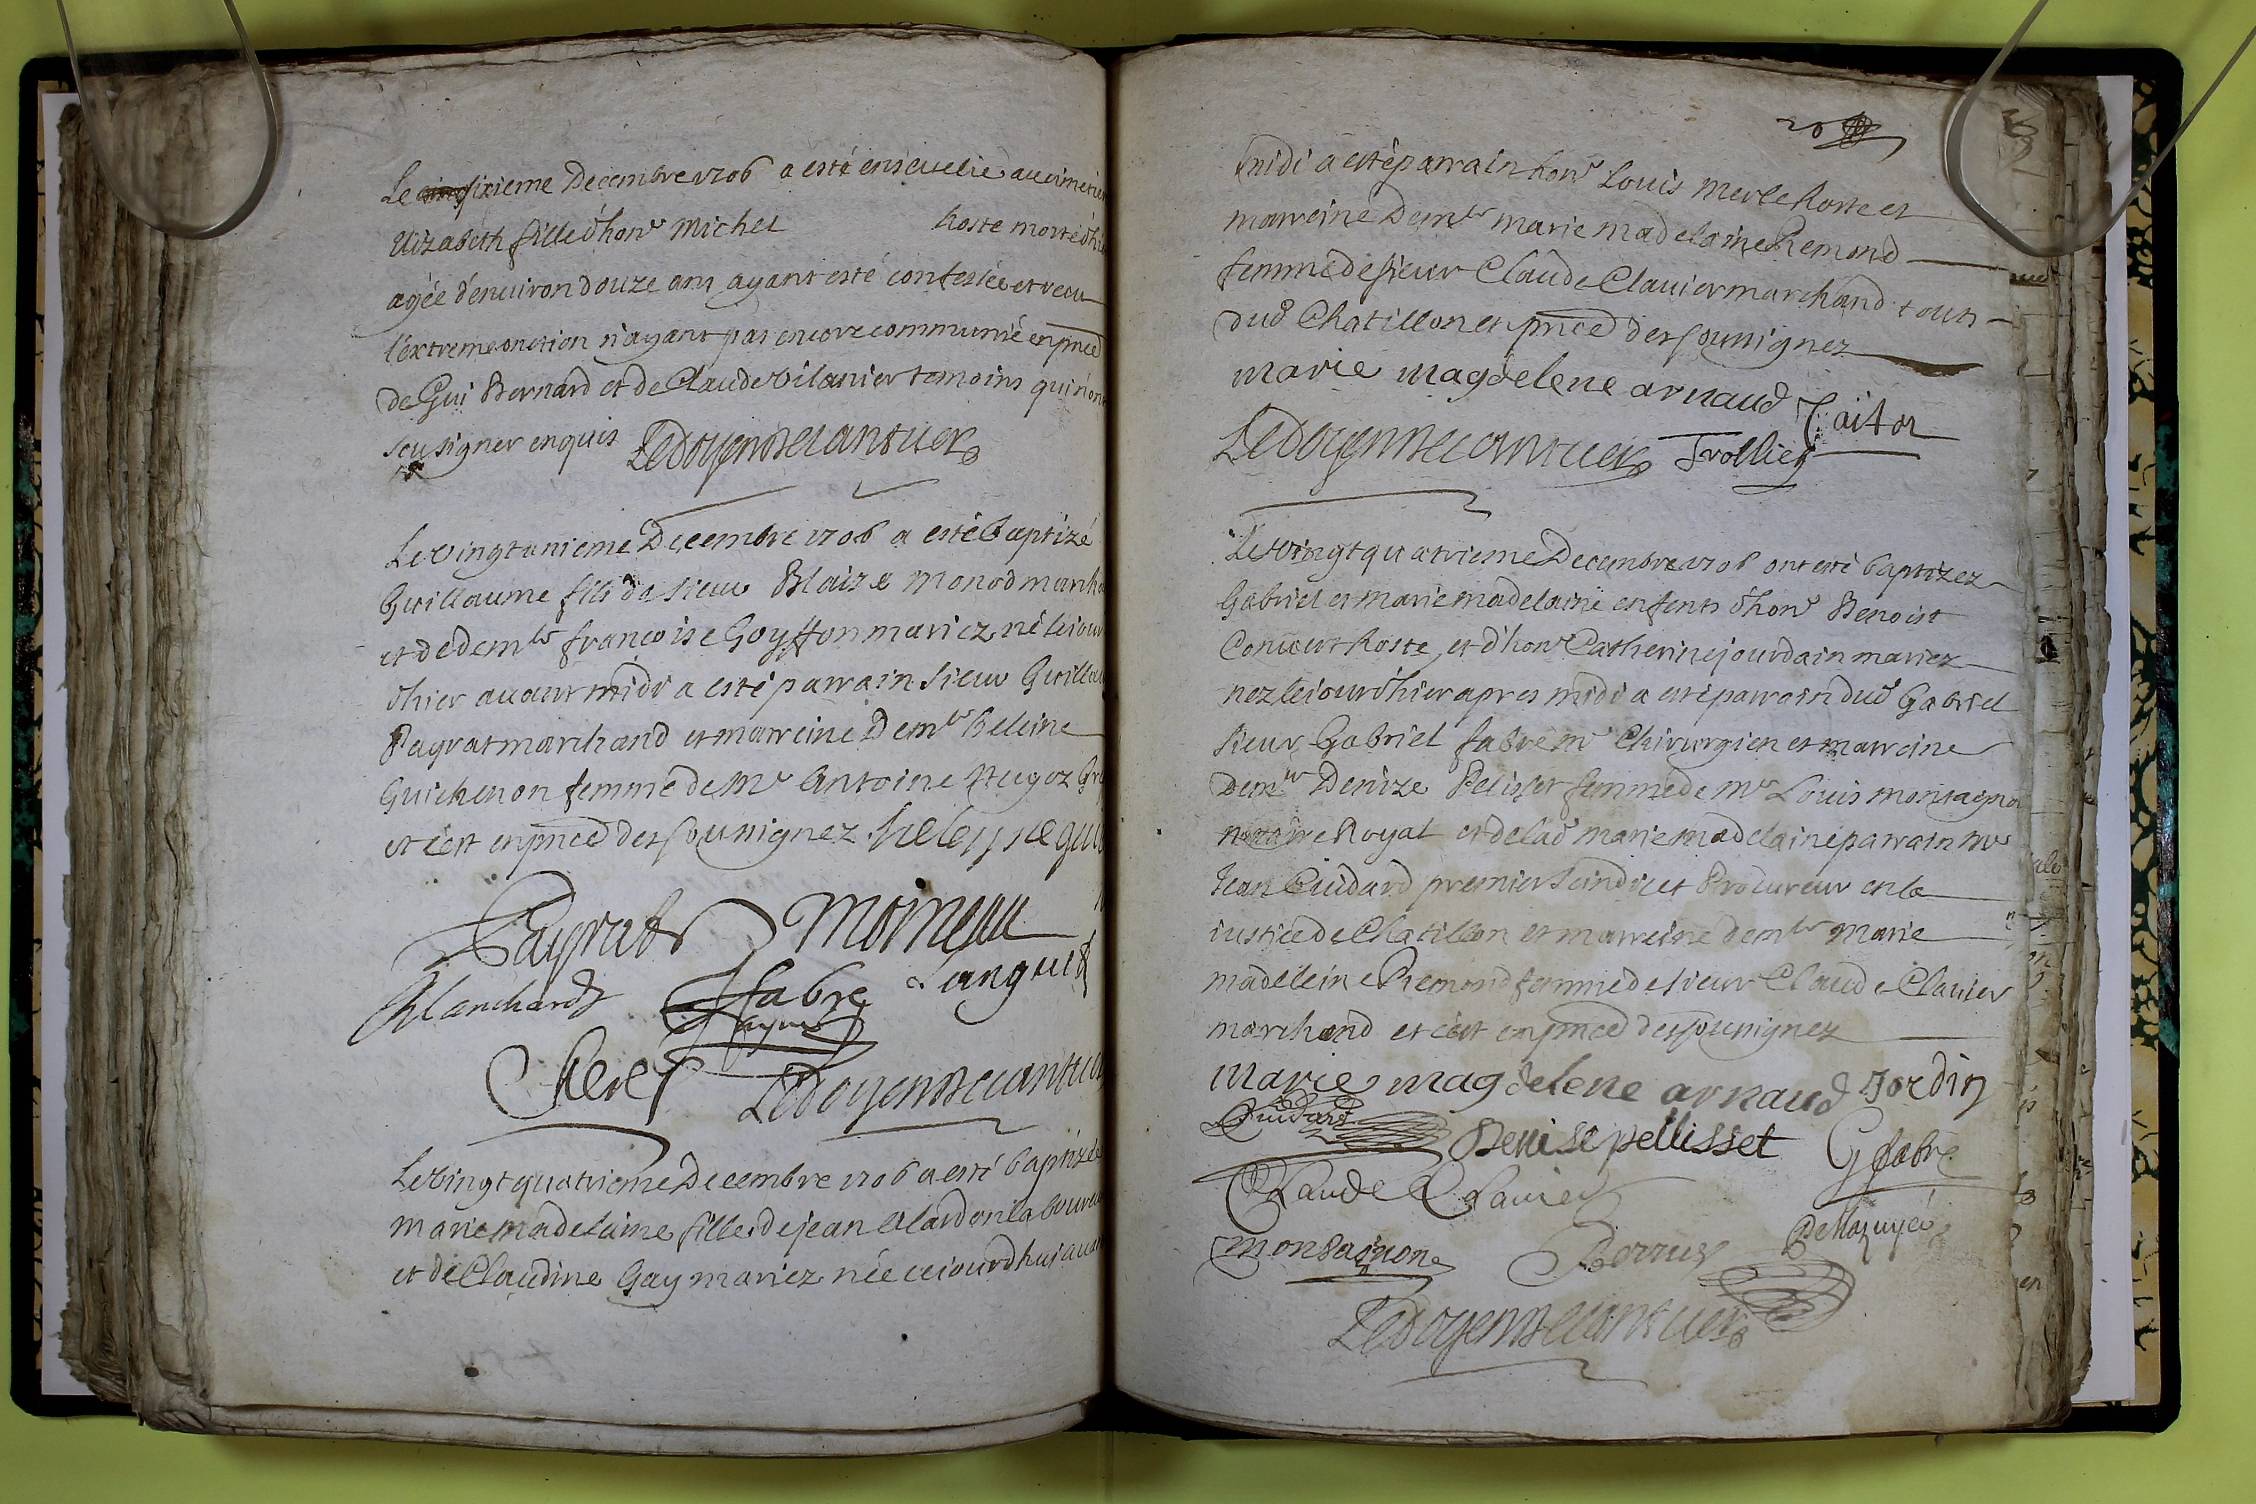 Le sixieme Decembre 1706 a esté ensevelie au cimetiere
Elizabeth fille d'honê Michel hoste morte d'hier
agée d'environ douze ans ayant esté confessée et receu
l'extreme onction n'ayant pas encore communié en pnce
de Gui Bernard et de Claude Vilanier temoins qui n'ont
sceu signer enquis
Le vingtunieme Decembre 1706 a esté baptizé
Guillaume fils de sieur Blaize Monod march
et de demlle francoise Goyffon mariez né le jour
d'hier avant midi a esté parrain sieur Guillau
Payrat marchand et marreine Demlle heleine
Guichenon femme de Me Antoine Hugoz Gre
et c'est en pnce des sousignez. heleyne gui
Payrat Moineau
Blanchard fabre Languet
Cheret
Le vingtquatrieme Decembre 1706 a esté baptizée
marie madelaine fille de jean Alardon laboureur
et de Claudine Gay mariez née cejourdhui avant
20
midi a esté parrain honê Louis merle hoste et
marreine Demlle marie madelaine Remond
femme de sieur Claude Clavier marchand touts
dud Chatillon et pnce des sousignez
marie magdelene arnaud
Trollier
Le vingtquatrieme Decembre 1706 ont esté baptizez
Gabriel et marie madelaine enfents d'honê Benoist
Convert hoste, et d'honê Catherine jourdain mariez
nez le jour d'hier apres midi a esté parrain dud Gabriel
sieur Gabriel fabre me Chirurgien et marreine
Demlle Denize Pelisset femme de Me Louis montagnon
notaire Royal et de lad marie madelaine parrain me
Jean Cuidard premier Sindic et Procureur en la
justice de Chatillon et marreine demlle Marie
madeleine Remond femme de sieur Claude Clavier
marchand et c'est en pnce des sousignez
marie magdelene arnaud Jordin
Cuidard Denise pellisset G fabre
Claude Clavier
montagnon Perrus